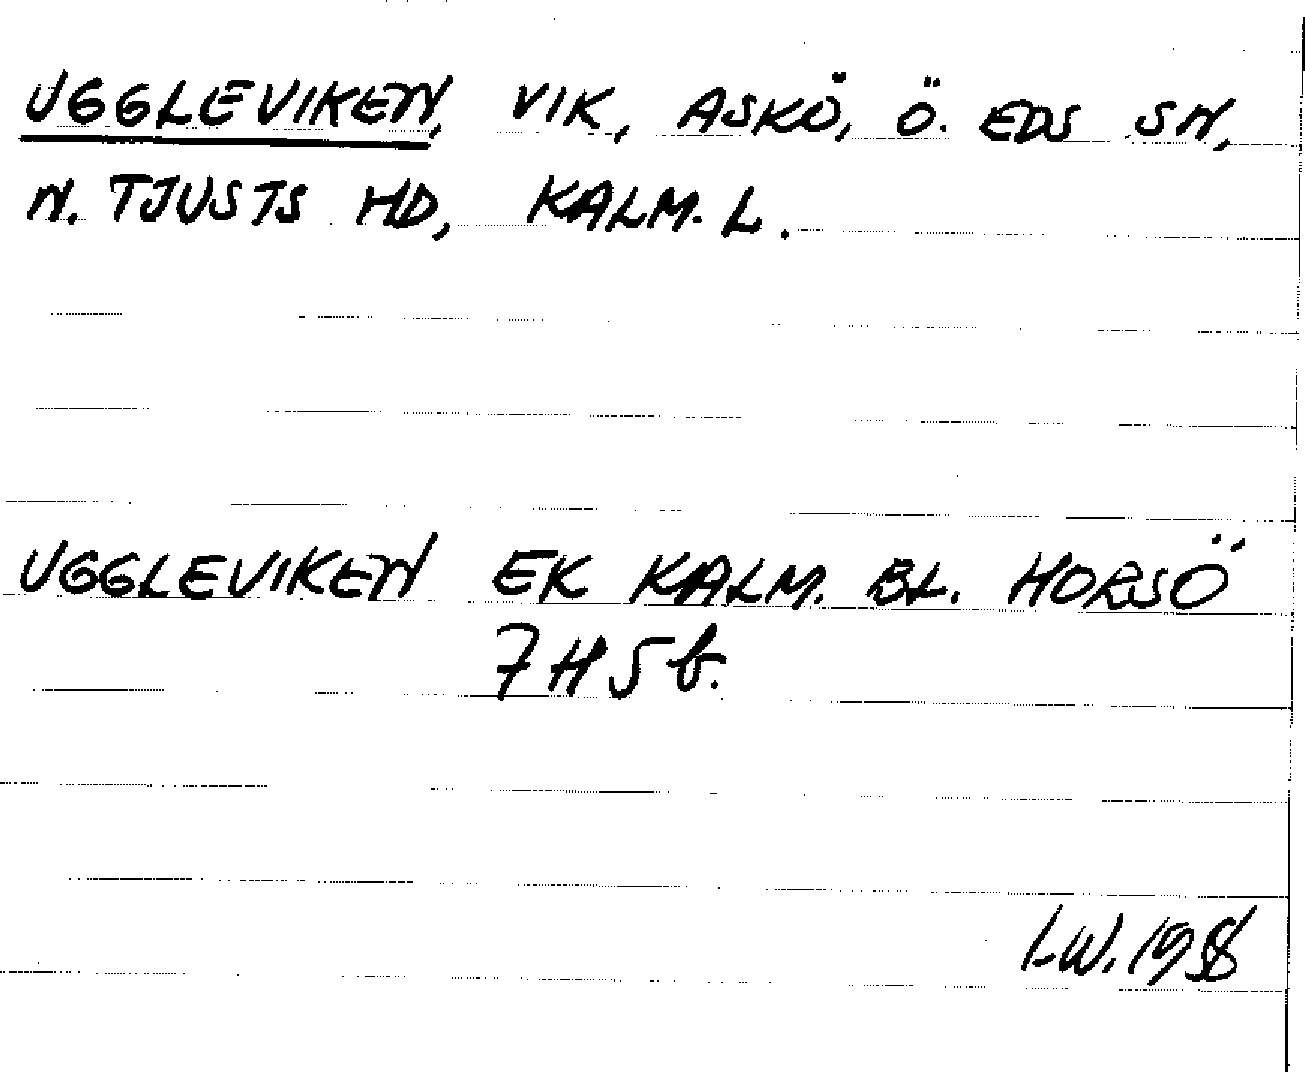 UGGLEVIKEN, VIK, ASKÖ, Ö. EDS SN,
N. TJUSTS HD, KALM. L.
UGGLEVIKEN EK KALM. BL. HORSÖ
7H5b.
I.W. 1958